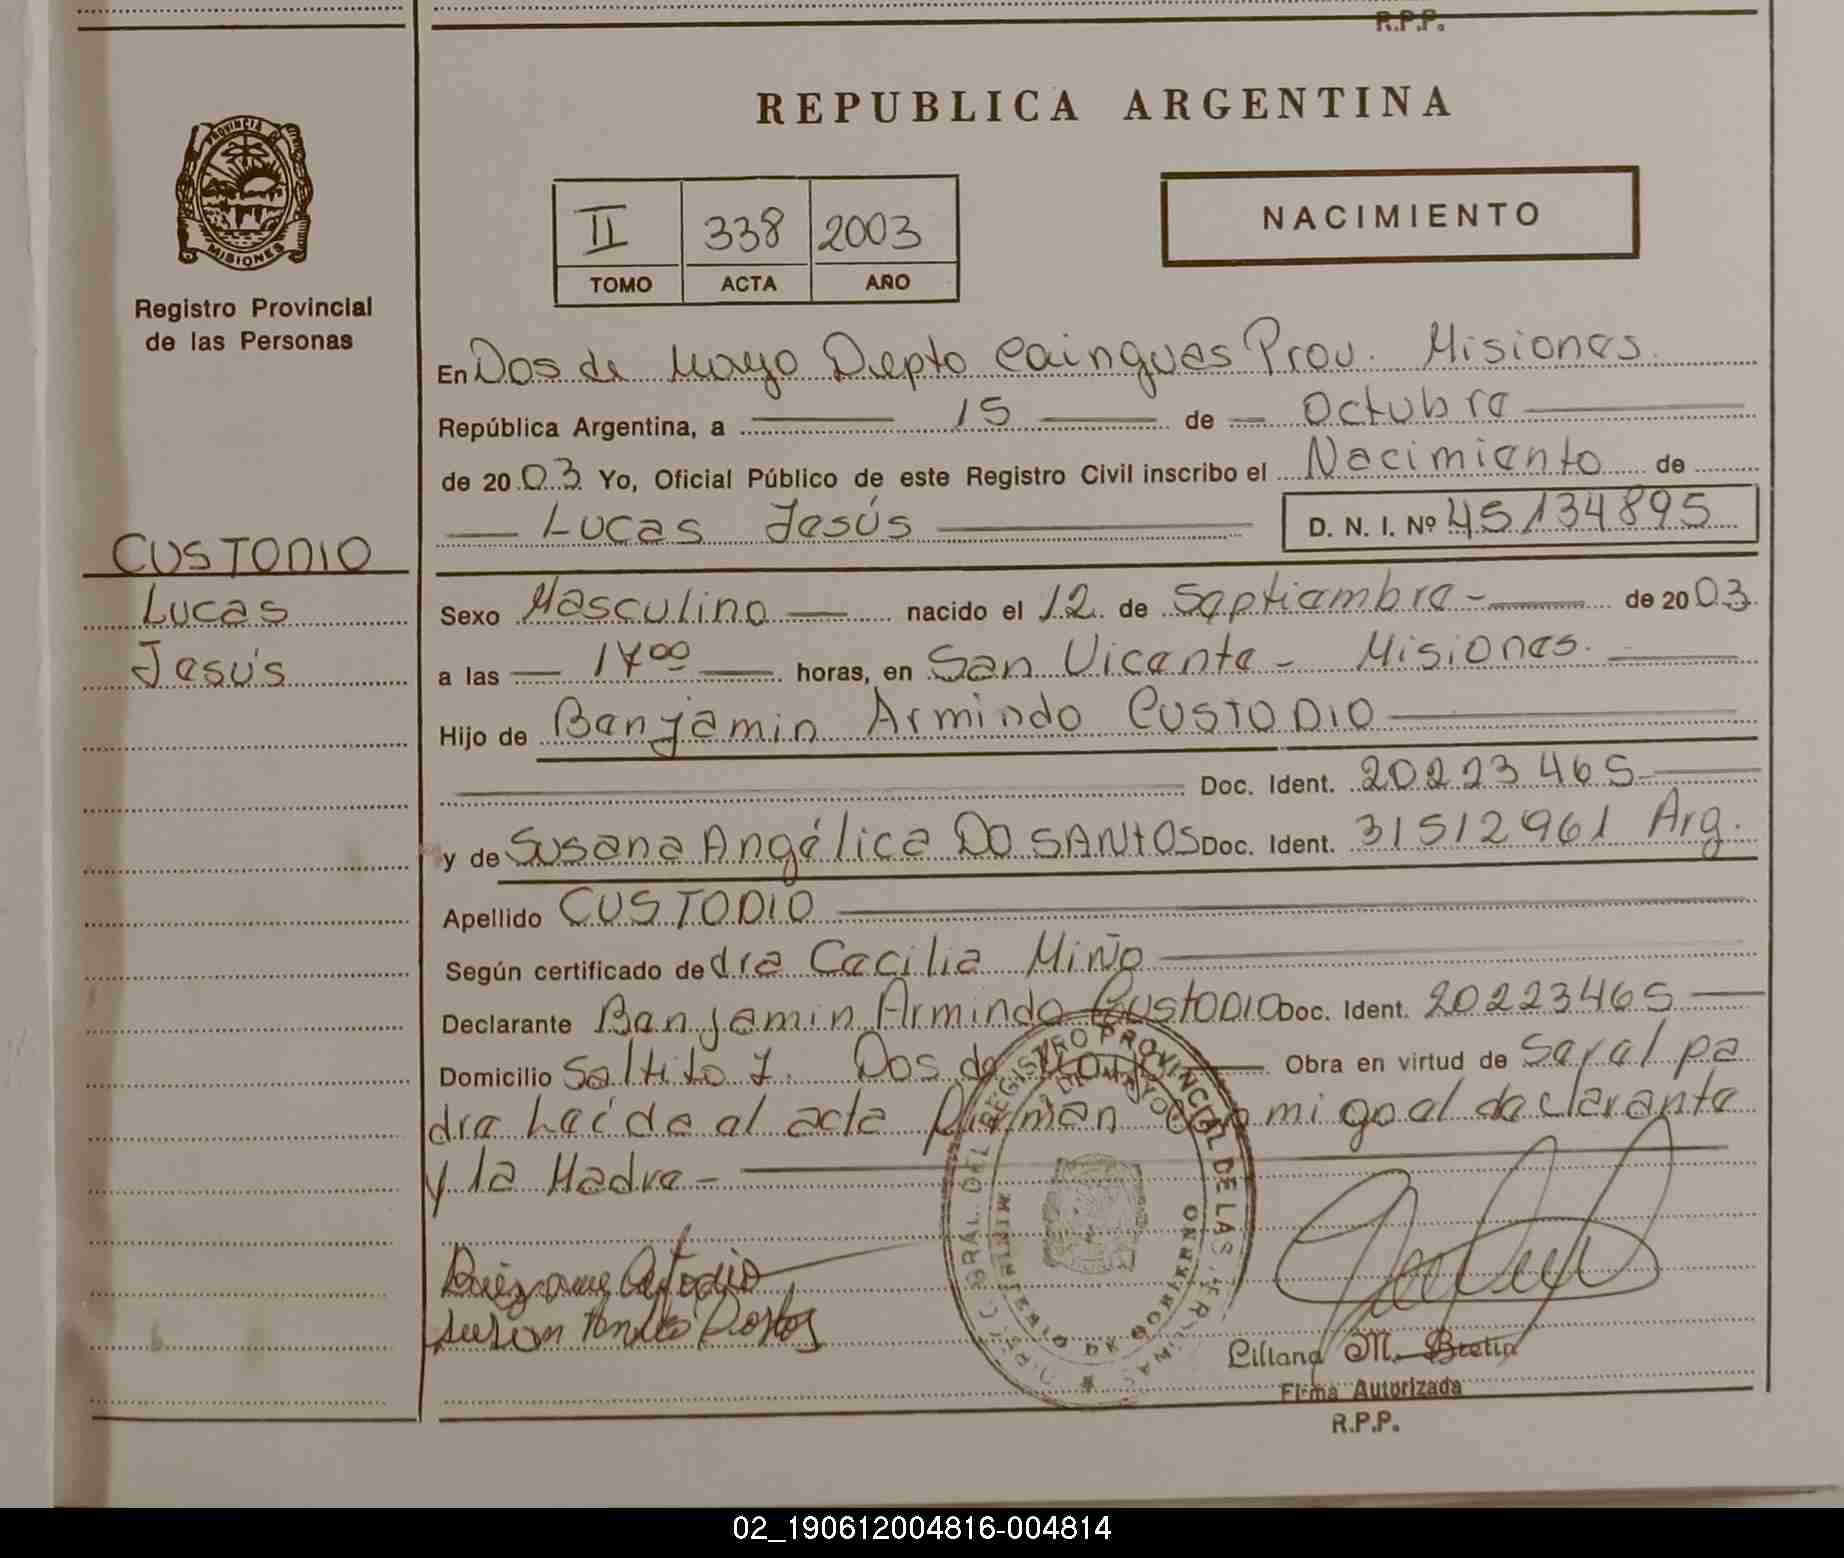 R.P.P.
REPUBLICA ARGENTINA
PROVINCIA DE
MISIONES
Registro Provincial
de las Personas
II 338 2003
TOMO ACTA AÑO
NACIMIENTO
En Dos de Mayo Depto Cainguas Prov. Misiones
República Argentina, a 15 de Octubre
de 2003 Yo, Oficial Público de este Registro Civil inscribo el Nacimiento de
Lucas Jesús D. N. I. Nº 45134895
CUSTODIO
Lucas
Jesús
Sexo Masculino nacido el 12 de Septiembre - de 2003
a las 1400 horas, en San Vicente - Misiones.
Hijo de Benjamin Armindo CUSTODIO
Doc. Ident. 20223465
y de Susana Angélica DO SANTOS Doc. Ident. 31512961 Arg.
Apellido CUSTODIO
Según certificado de dra Cecilia Miño
Declarante Benjamin Armindo CUSTODIO Doc. Ident. 20223465
Domicilio Saltito 1. Dos de Mayo Obra en virtud de Ser el pa
dre Leída el acta firman conmigo el declarante
y la Madre -
REGISTRO PROVINCIAL DE LAS
Liliana M. Bretin
Firma Autorizada
R.P.P.
02_190612004816-004814